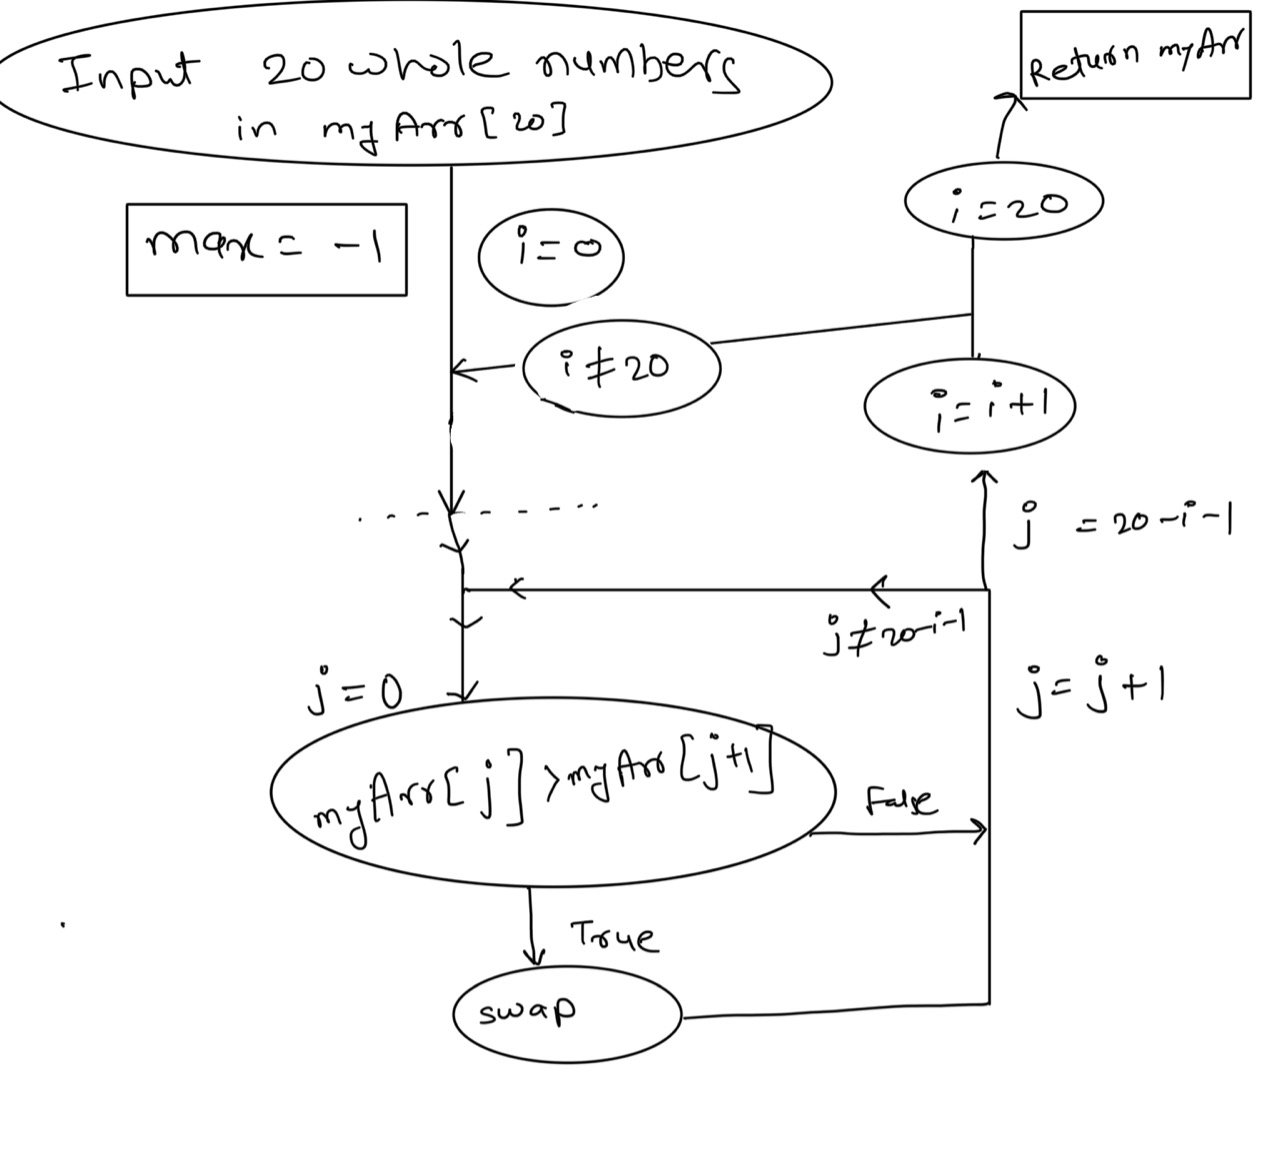 Input 20 whole numbers
in myArr[20]
max = -1
i=0
i≠20
Return myArr
i=20
i=i+1
j = 20-i-1
j≠20-i-1
j=j+1
j=0
myArr[j]>myArr[j+1]
False
True
swap